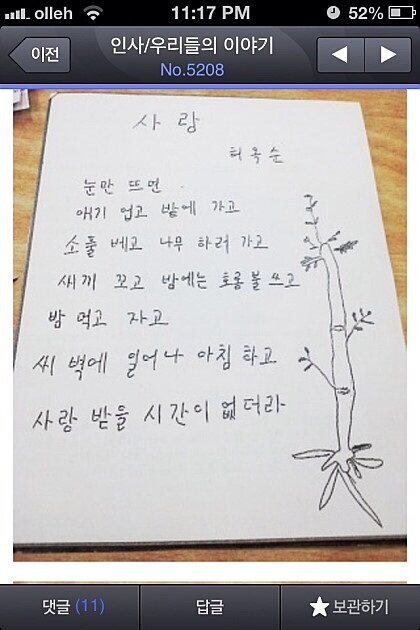 olleh 11:17 PM 52%
이전 인사/우리들의 이야기
No.5208
사랑
허옥순
눈만 뜨면
애기 업고 밭에 가고
소풀 베고 나무 하러 가고
새끼 꼬고 밤에는 호롱불 쓰고
밥 먹고 자고
씨벽에 일어나 아침 하고
사랑 받을 시간이 없더라
댓글 (11) 답글 보관하기